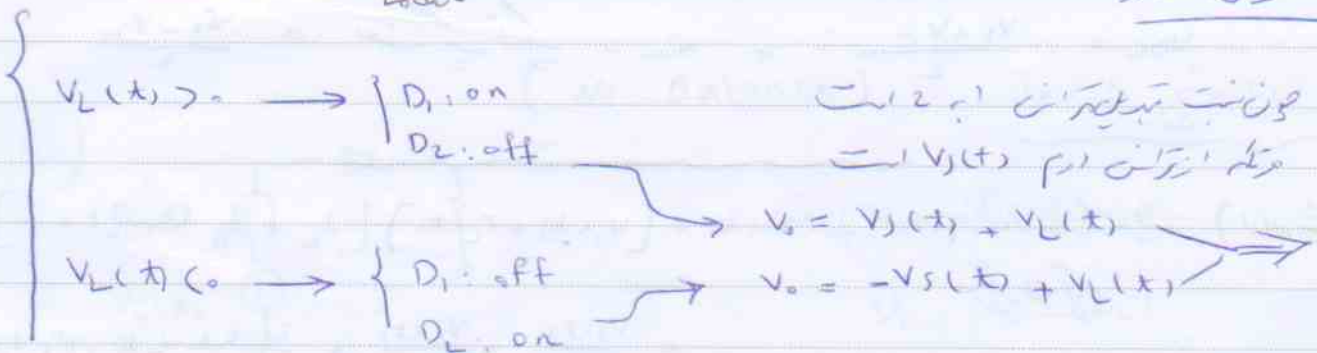 V_L(t) > 0 → { D_1: on
D_2: off
چون نسبت تبدیل ترانس 1 به 2 است
هر تکه از ترانس دوم V_s(t) است
V_o = V_s(t) + V_L(t)
V_L(t) < 0 → { D_1: off
D_2: on
V_o = -V_s(t) + V_L(t) ⇒